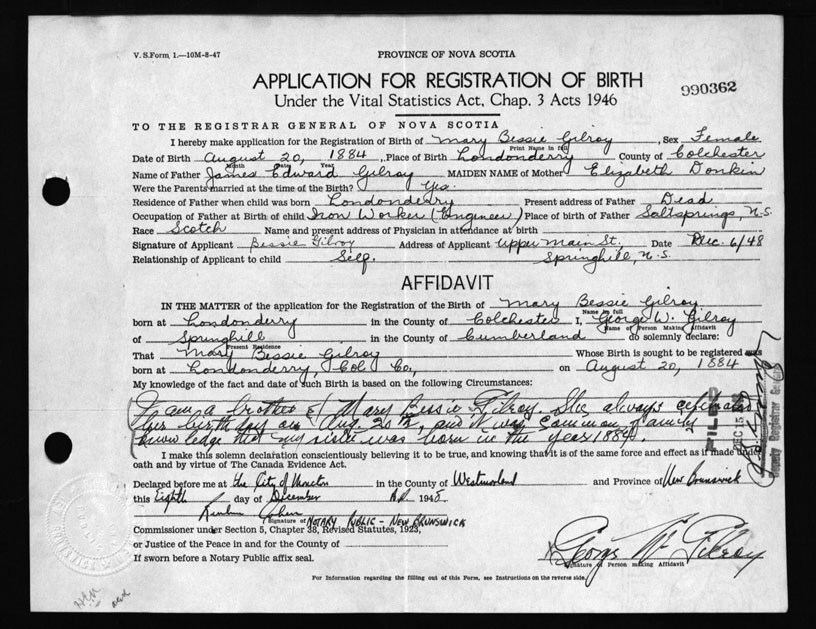 V. S. Form 1.—10M-8-47
PROVINCE OF NOVA SCOTIA
APPLICATION FOR REGISTRATION OF BIRTH
990362
Under the Vital Statistics Act, Chap. 3 Acts 1946
TO THE REGISTRAR GENERAL OF NOVA SCOTIA
I hereby make application for the Registration of Birth of Mary Bessie Gilroy, Sex Female
Print Name in full
Date of Birth August 20, 1884, Place of Birth Londonderry County of Colchester
Month Day Year
Name of Father James Edward Gilroy MAIDEN NAME of Mother Elizabeth Donkin
Were the Parents married at the time of the Birth? Yes.
Residence of Father when child was born Londonderry Present address of Father Dead
Occupation of Father at Birth of child Iron Worker (Engineer) Place of birth of Father Saltsprings, N.S.
Race Scotch Name and present address of Physician in attendance at birth
Signature of Applicant Bessie Gilroy Address of Applicant Upper Main St. Date Dec. 6/48
Relationship of Applicant to child Self. Springhill, N.S.
AFFIDAVIT
IN THE MATTER of the application for the Registration of the Birth of Mary Bessie Gilroy
Name in full
born at Londonderry in the County of Colchester I, George W. Gilroy
Name of Person Making Affidavit
of Springhill in the County of Cumberland do solemnly declare:
Present Residence
That Mary Bessie Gilroy Whose Birth is sought to be registered was
born at Londonderry, Col Co., on August 20, 1884
My knowledge of the fact and date of such Birth is based on the following Circumstances:
I am a brother of Mary Bessie Gilroy. She always celebrated
her birthday on Aug. 20th, and it was common family
knowledge that my sister was born in the year 1884.
FILED
DEC 15
Deputy Registrar General
I make this solemn declaration conscientiously believing it to be true, and knowing that it is of the same force and effect as if made under
oath and by virtue of The Canada Evidence Act.
Declared before me at the City of Moncton in the County of Westmorland and Province of New Brunswick
this Eighth day of December AD 1948
Signature of NOTARY PUBLIC - NEW BRUNSWICK
Commissioner under Section 5, Chapter 38, Revised Statutes, 1923,
or Justice of the Peace in and for the County of
George W Gilroy
Signature of Person making Affidavit
If sworn before a Notary Public affix seal.
For Information regarding the filling out of this Form, see Instructions on the reverse side.